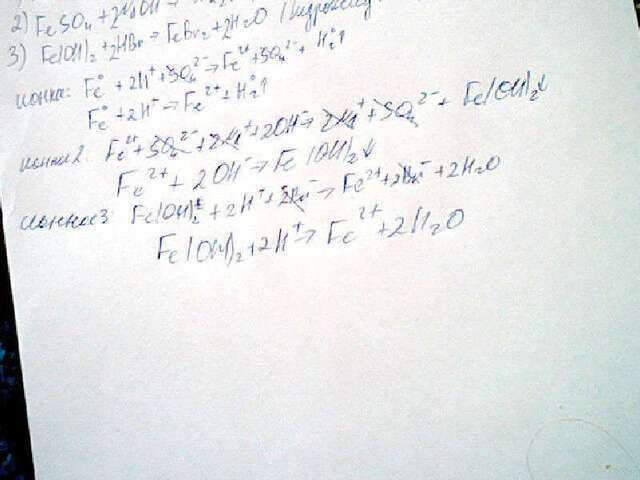 2) FeSO₄ + 2NaOH →
3) Fe(OH)₂ + 2HBr → FeBr₂ + 2H₂O (гидроксид
ионка: Fe⁰ + 2H⁺ + SO₄²⁻ → Fe²⁺ + SO₄²⁻ + H₂⁰↑
Fe⁰ + 2H⁺ → Fe²⁺ + H₂⁰↑
ионка 2 Fe²⁺ + SO₄²⁻ + 2Na⁺ + 2OH⁻ → 2Na⁺ + SO₄²⁻ + Fe(OH)₂↓
Fe²⁺ + 2OH⁻ → Fe(OH)₂↓
ионка 3 Fe(OH)₂ + 2H⁺ + 2Br⁻ → Fe²⁺ + 2Br⁻ + 2H₂O
Fe(OH)₂ + 2H⁺ → Fe²⁺ + 2H₂O